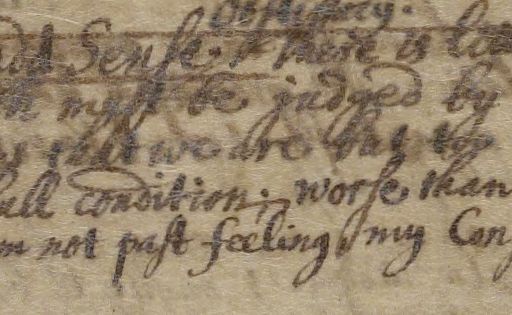 Sense. & there is
must be judged by
that we are but too
condition; worse than
not past feeling, my